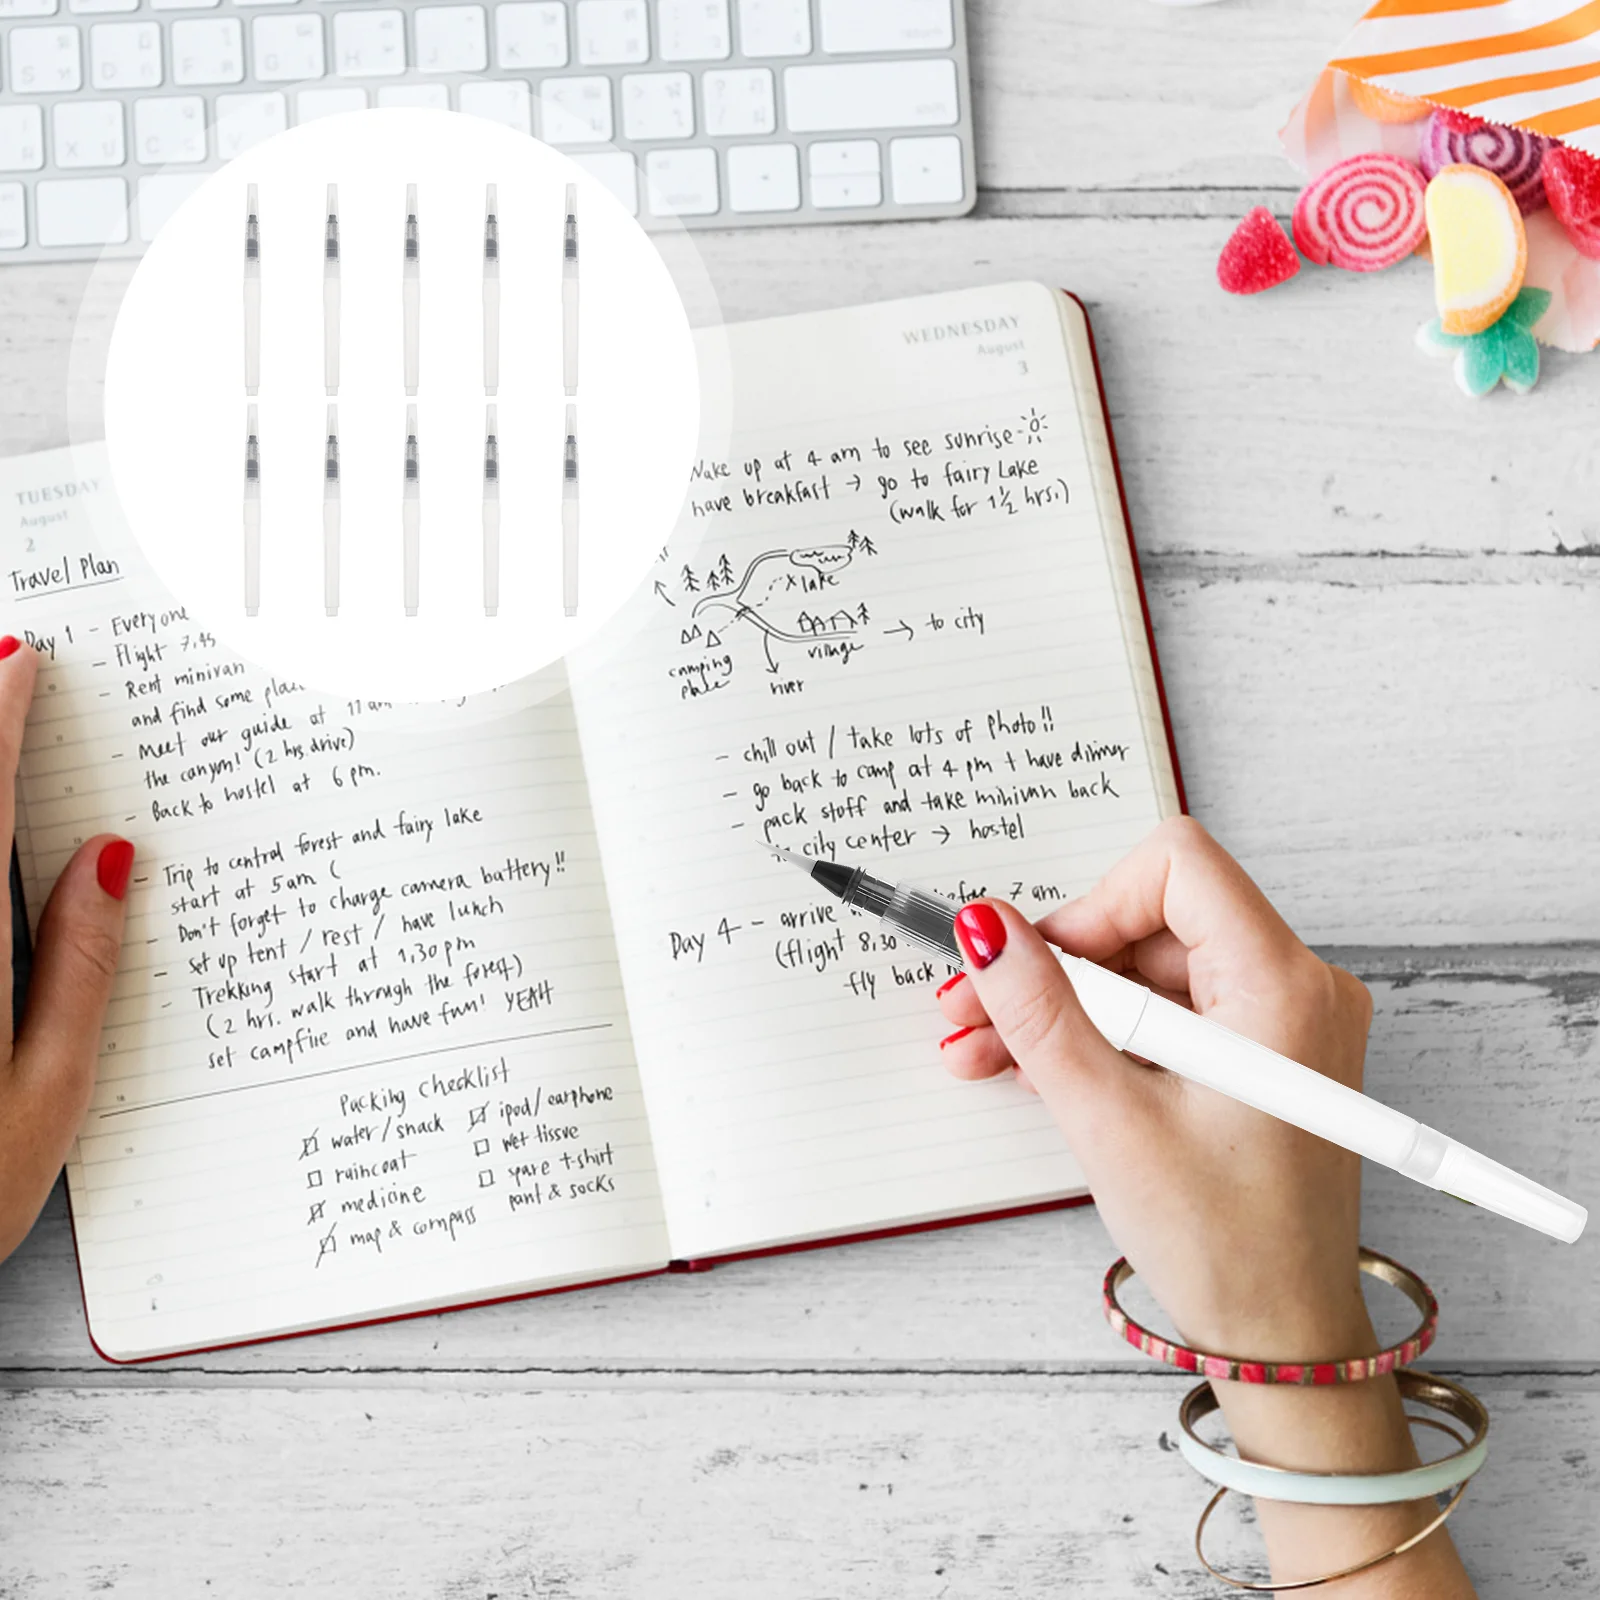 TUESDAY
August
2
Travel Plan
Day 1 - Everyone
- Flight 7,45
- Rent minivan
and find some
- Meet our guide at 11 am
the canyon! (2 hrs, drive)
- Back to hostel at 6 pm.
- Trip to central forest and fairy lake
start at 5 am (
- Don't forget to charge camera battery!!
- Set up tent / rest / have lunch
- Trekking start at 1,30 pm
(2 hrs. walk through the forest)
set campfire and have fun! YEAH
Packing Checklist
water/snack
raincoat
medicine
map & compass
ipod/earphone
wet tissue
spare t-shirt
pant & socks
WEDNESDAY
August
3
Wake up at 4 am to see sunrise
have breakfast → go to fairy Lake
(walk for 1 1/2 hrs.)
x lake
→ to city
village
camping
place
river
- chill out / take lots of photo!!
- go back to camp at 4 pm + have dinner
- pack stoff and take minivan back
to city center → hostel
Day 4 - arrive before 7 am.
(flight 8,30
fly back